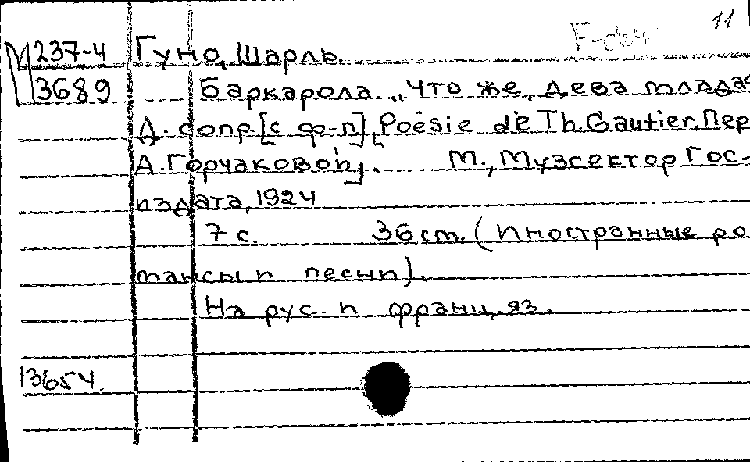 11
M 237-4 Гуно, Шарль.
3689 Баркарола. „Что же, дева млада
Д. сопр[с ф-п], [Poésie de Th. Gautier. Пер
А. Горчаковой]. М., Музсектор Гос-
издата, 1924
7 с. 36 ст. (Иностранные ро
мансы и песни).
На рус. и франц. яз.
13654.